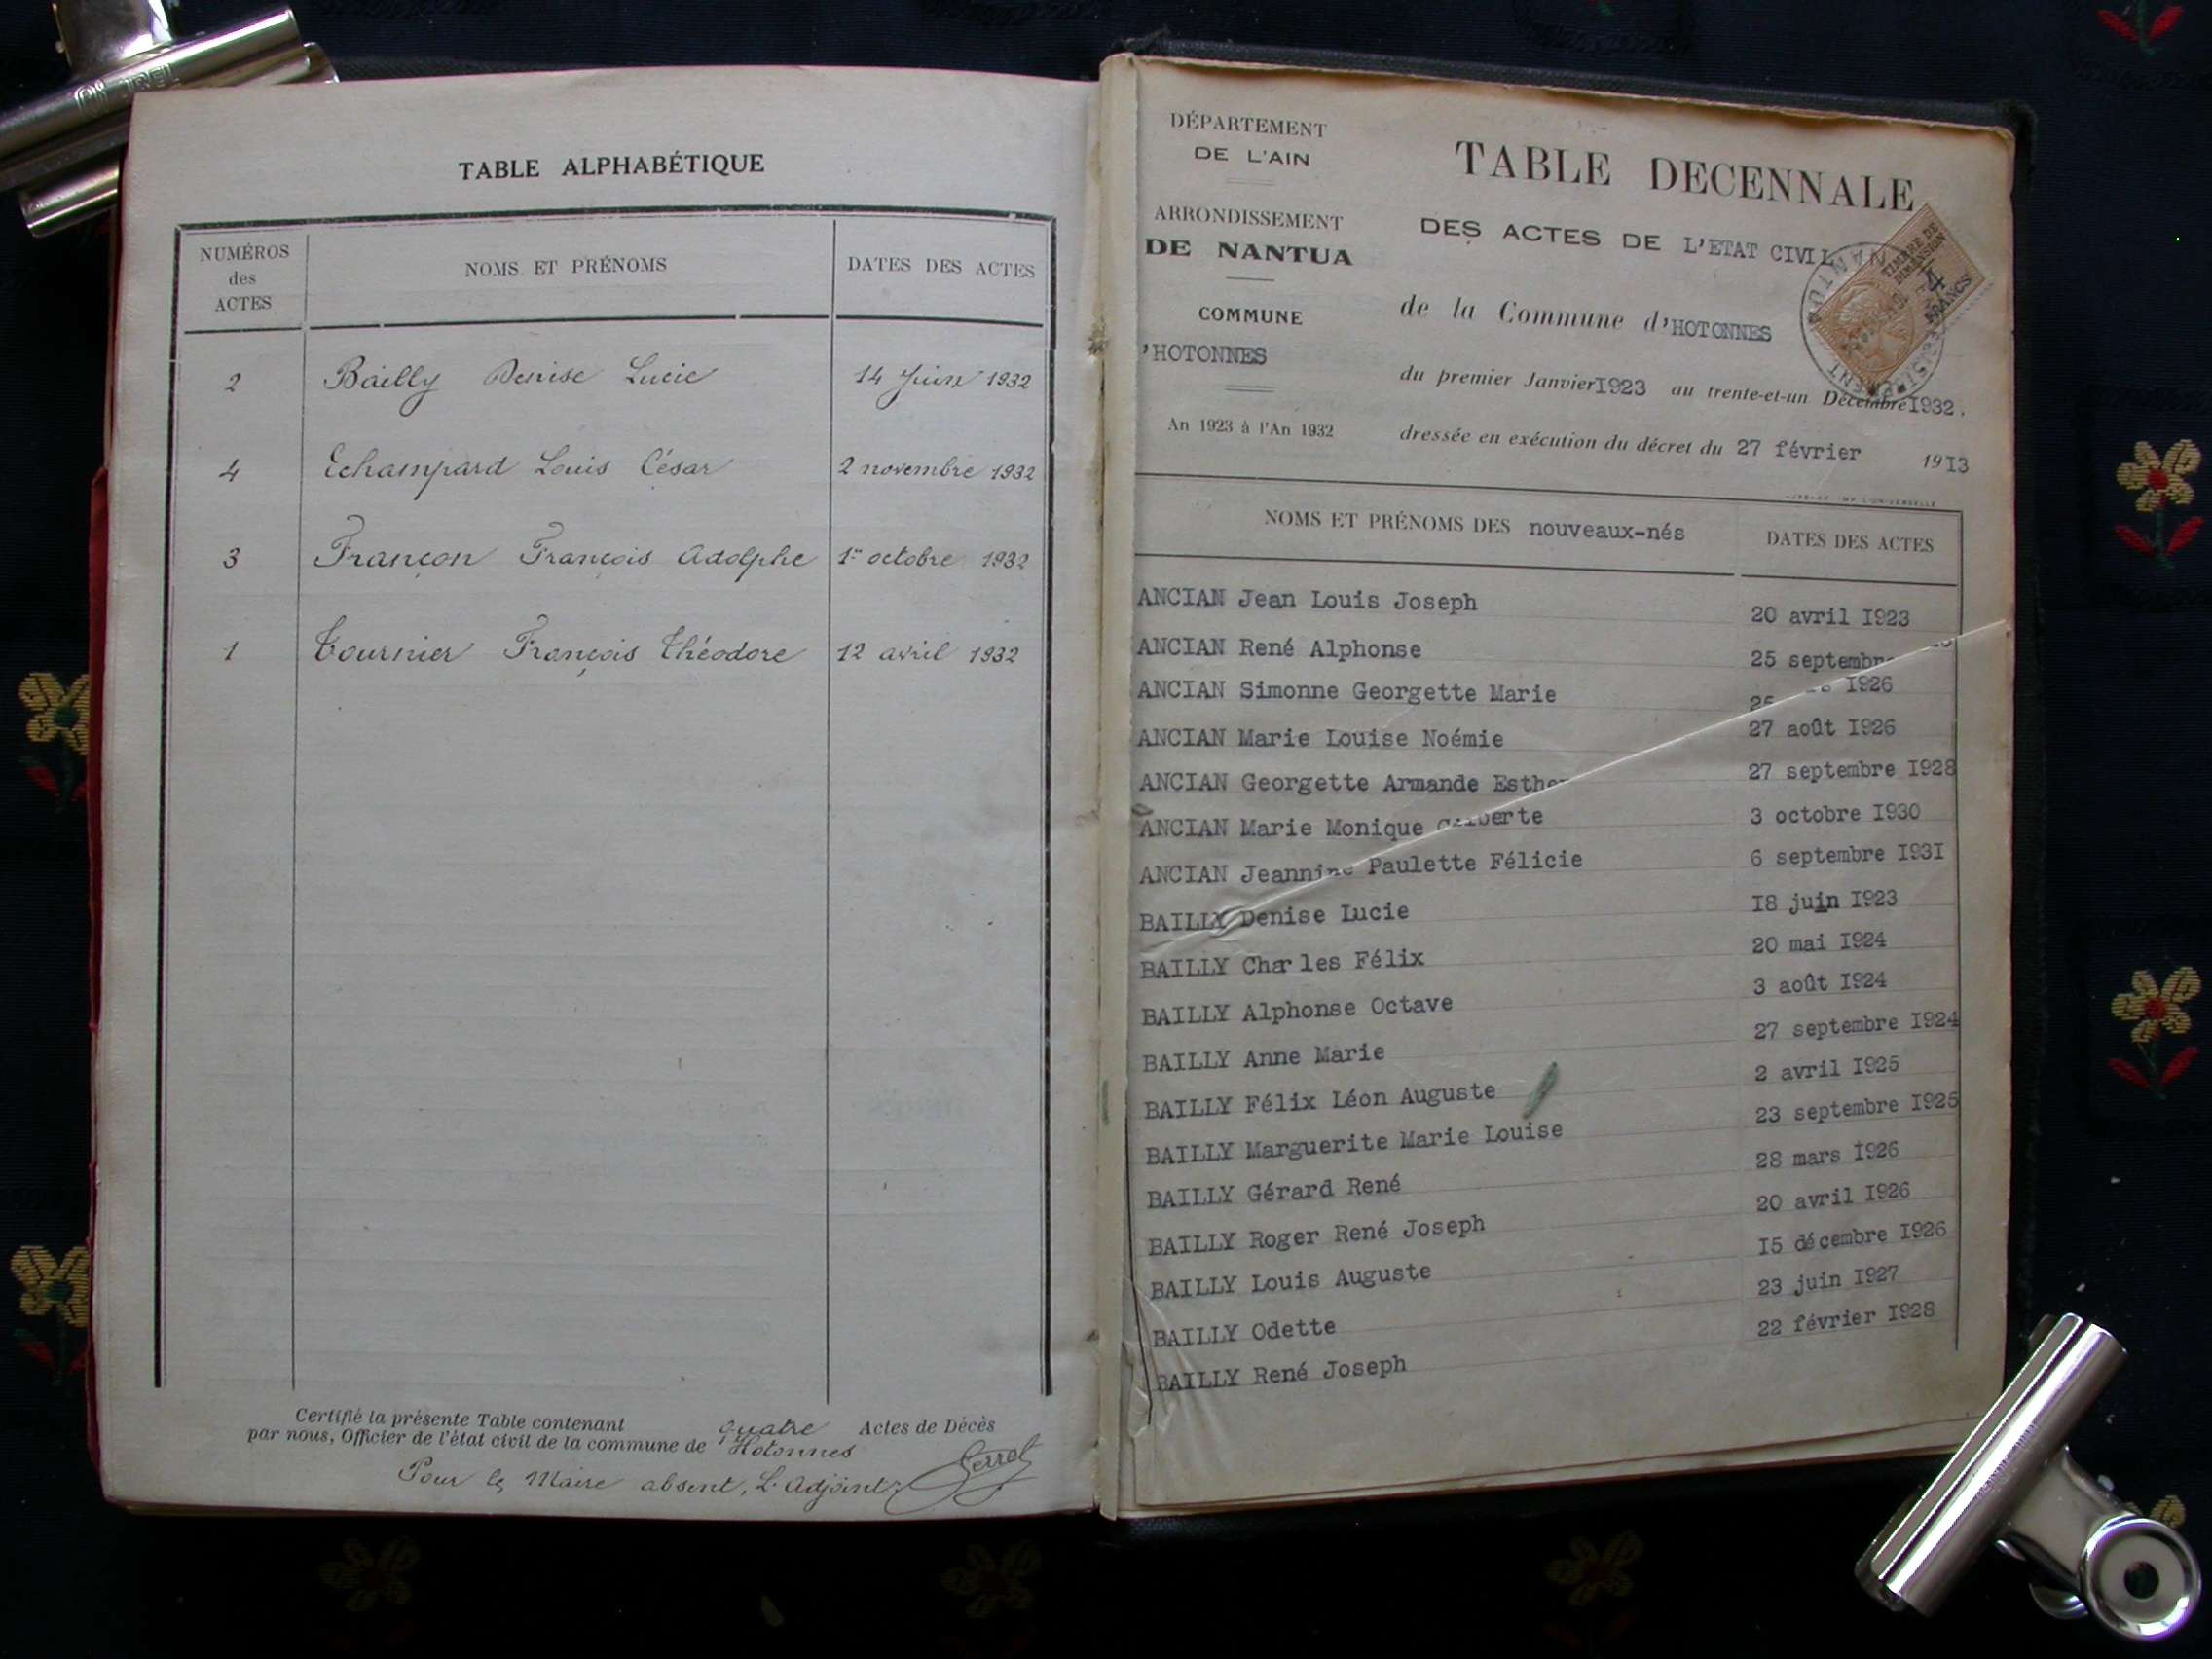 TABLE ALPHABÉTIQUE
NUMÉROS des ACTES
NOMS ET PRÉNOMS
DATES DES ACTES
2 Bailly Denise Lucie 14 Juin 1932
4 Echampard Louis César 2 novembre 1932
3 Françon François Adolphe 1er octobre 1932
1 Tournier François Théodore 12 avril 1932
Certifié la présente Table contenant quatre Actes de Décès
par nous, Officier de l'état civil de la commune de Hotonnes
Pour le Maire absent, L'Adjoint
DÉPARTEMENT
DE L'AIN
ARRONDISSEMENT
DE NANTUA
COMMUNE
'HOTONNES
An 1923 à l'An 1932
TABLE DECENNALE
DES ACTES DE L'ETAT CIVIL
TIMBRE DE
DIMENSION
4
FRANCS
de la Commune d'HOTONNES
du premier Janvier I923 au trente-et-un Décembre I932.
dressée en exécution du décret du 27 février 19I3
NOMS ET PRÉNOMS DES nouveaux-nés
DATES DES ACTES
ANCIAN Jean Louis Joseph 20 avril I923
ANCIAN René Alphonse 25
ANCIAN Simonne Georgette Marie I926
ANCIAN Marie Louise Noémie 27 août I926
ANCIAN Georgette Armande 27 septembre I928
ANCIAN Marie Monique 3 octobre I930
ANCIAN Jeannine Paulette Félicie 6 septembre I93I
BAILLY Denise Lucie I8 juin I923
BAILLY Charles Félix 20 mai I924
BAILLY Alphonse Octave 3 août I924
BAILLY Anne Marie 27 septembre I924
BAILLY Félix Léon Auguste 2 avril I925
BAILLY Marguerite Marie Louise 23 septembre I925
BAILLY Gérard René 28 mars I926
BAILLY Roger René Joseph 20 avril I926
BAILLY Louis Auguste I5 décembre I926
BAILLY Odette 23 juin I927
BAILLY René Joseph 22 février I928